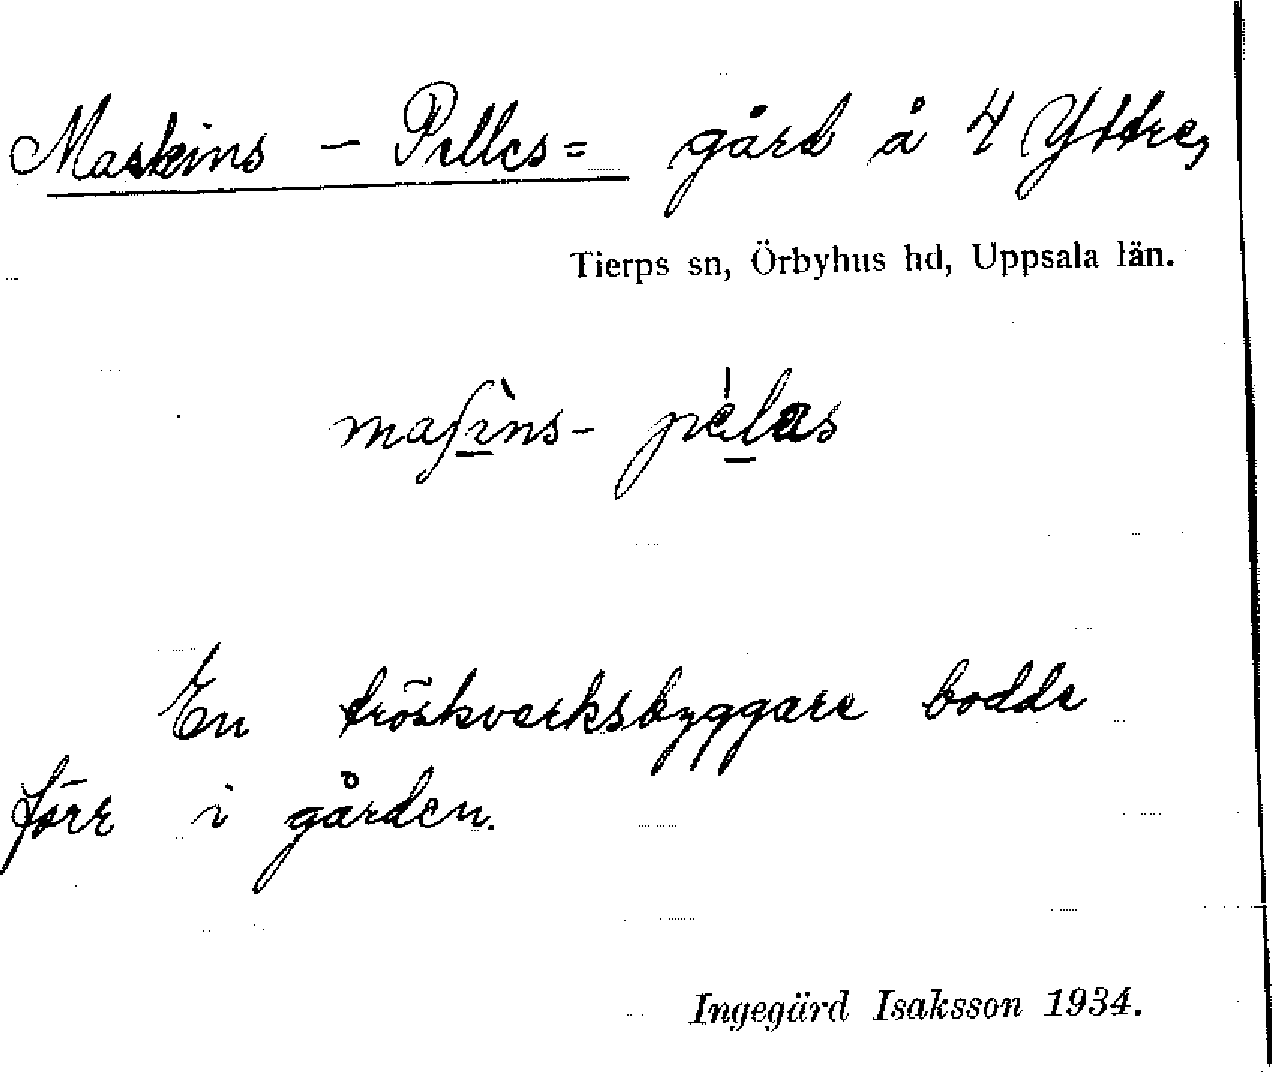 Maskins - Pelles= gård å 4 Yttre,
Tierps sn, Örbyhus hd, Uppsala län.
maʃìns- pélas
En tröskverksbyggare bodde
förr i gården.
Ingegärd Isaksson 1934.